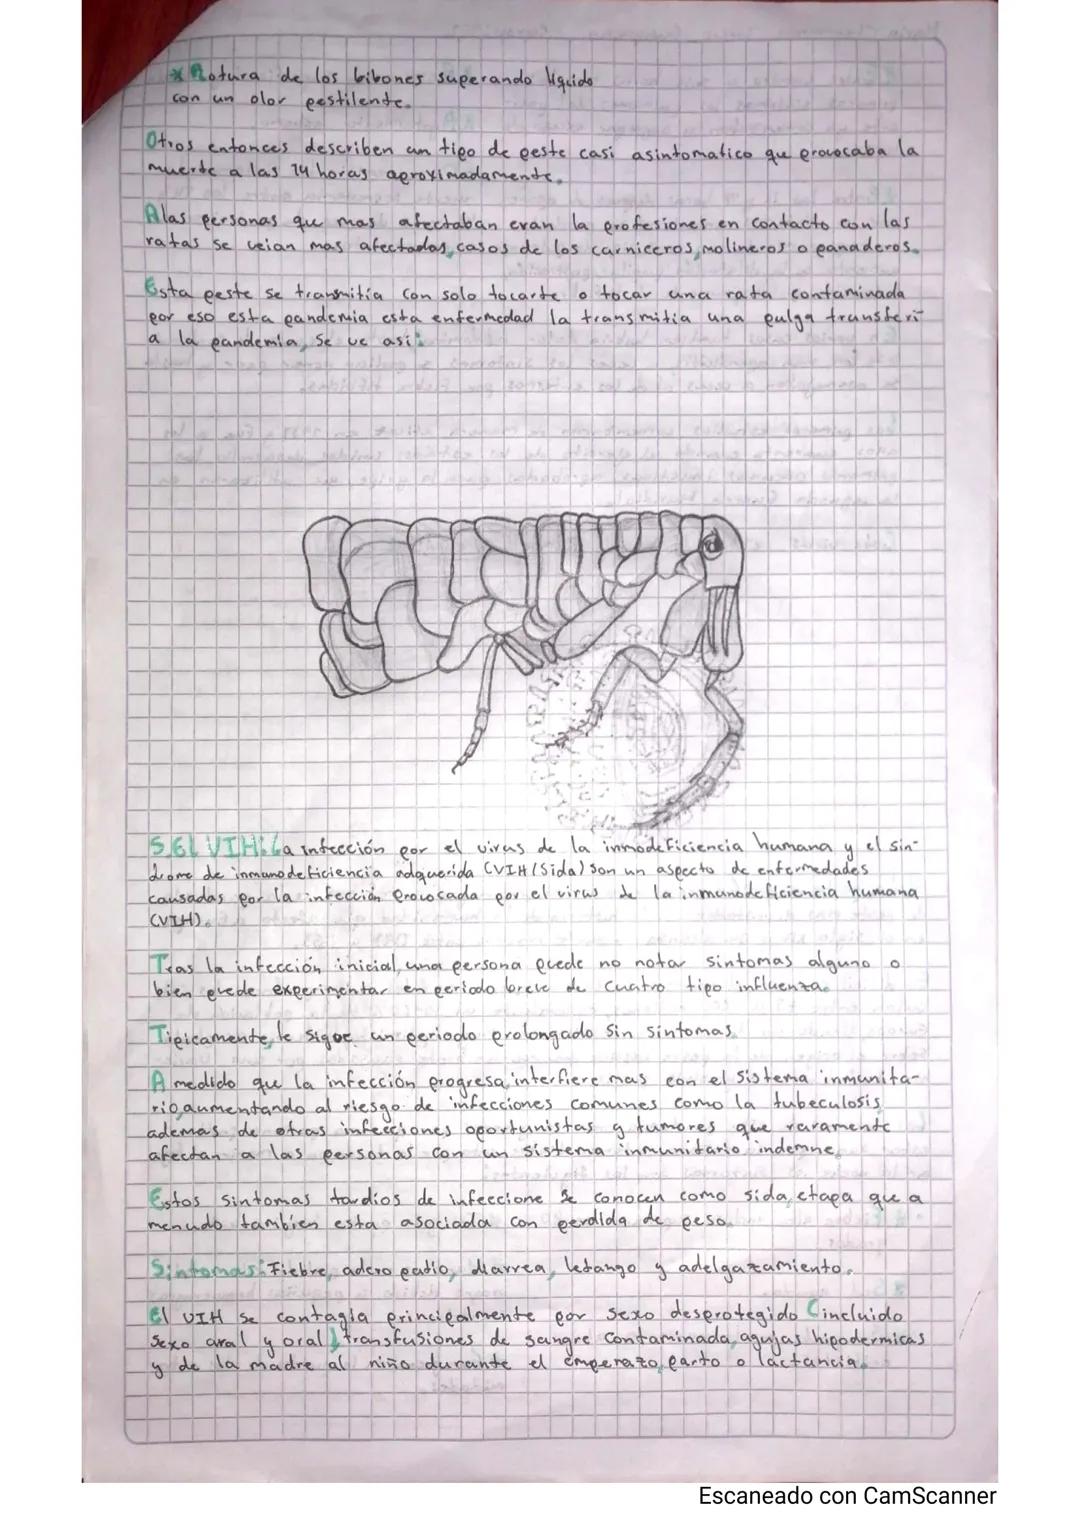 * Rotura de los bibones superando liquido
con un olor pestilente.
Otros entonces describen un tipo de peste casi asintomatico qu provocaba la
muerte a las 14 horas aproximadamente.
A las personas qu mas afectaban eran la profesiones en contacto con las
ratas se veian mas afectadas, casos de los carniceros, molineros o panaderos.
Esta peste se transmitia con solo tocarte o tocar una rata contaminada
por eso esta pandemia esta enfermedad la transmitia una pulga transferi
a la pandemia, Se ve asi:
5. El VIH: La infección por el virus de la inmodeficiencia humana y el sin-
drome de inmunodeficiencia adquerida (VIH/Sida) son un aspecto de enfermedades
causadas por la infección provocada por el virus de la inmunodeficiencia humana
(VIH).
Tras la infección inicial, una persona puede no notar sintomas alguno o
bien puede experimentar en periodo breve de cuatro tipo influenza.
Tipicamente, le sigue un periodo prolongado sin sintomas.
A medido que la infección progresa, interfiere mas con el sistema inmunita-
rio, aumentando al riesgo de infecciones comunes como la tubeculosis,
ademas de otras infecciones oportunistas y tumores que raramente
afectan a las personas con un sistema inmunitario indemne.
Estos sintomas tardios de infeccione se conocen como sida, etapa que a
menudo tambien esta asociada con perdida de peso.
Sintomas: Fiebre, adero patio, diarrea, letango y adelgazamiento.
El VIH se contagia principalmente por sexo desprotegido (incluido
sexo aral y oral), transfusiones de sangre contaminada, agujas hipodermicas
y de la madre al niño durante el emperazo, parto o lactancia.
Escaneado con CamScanner